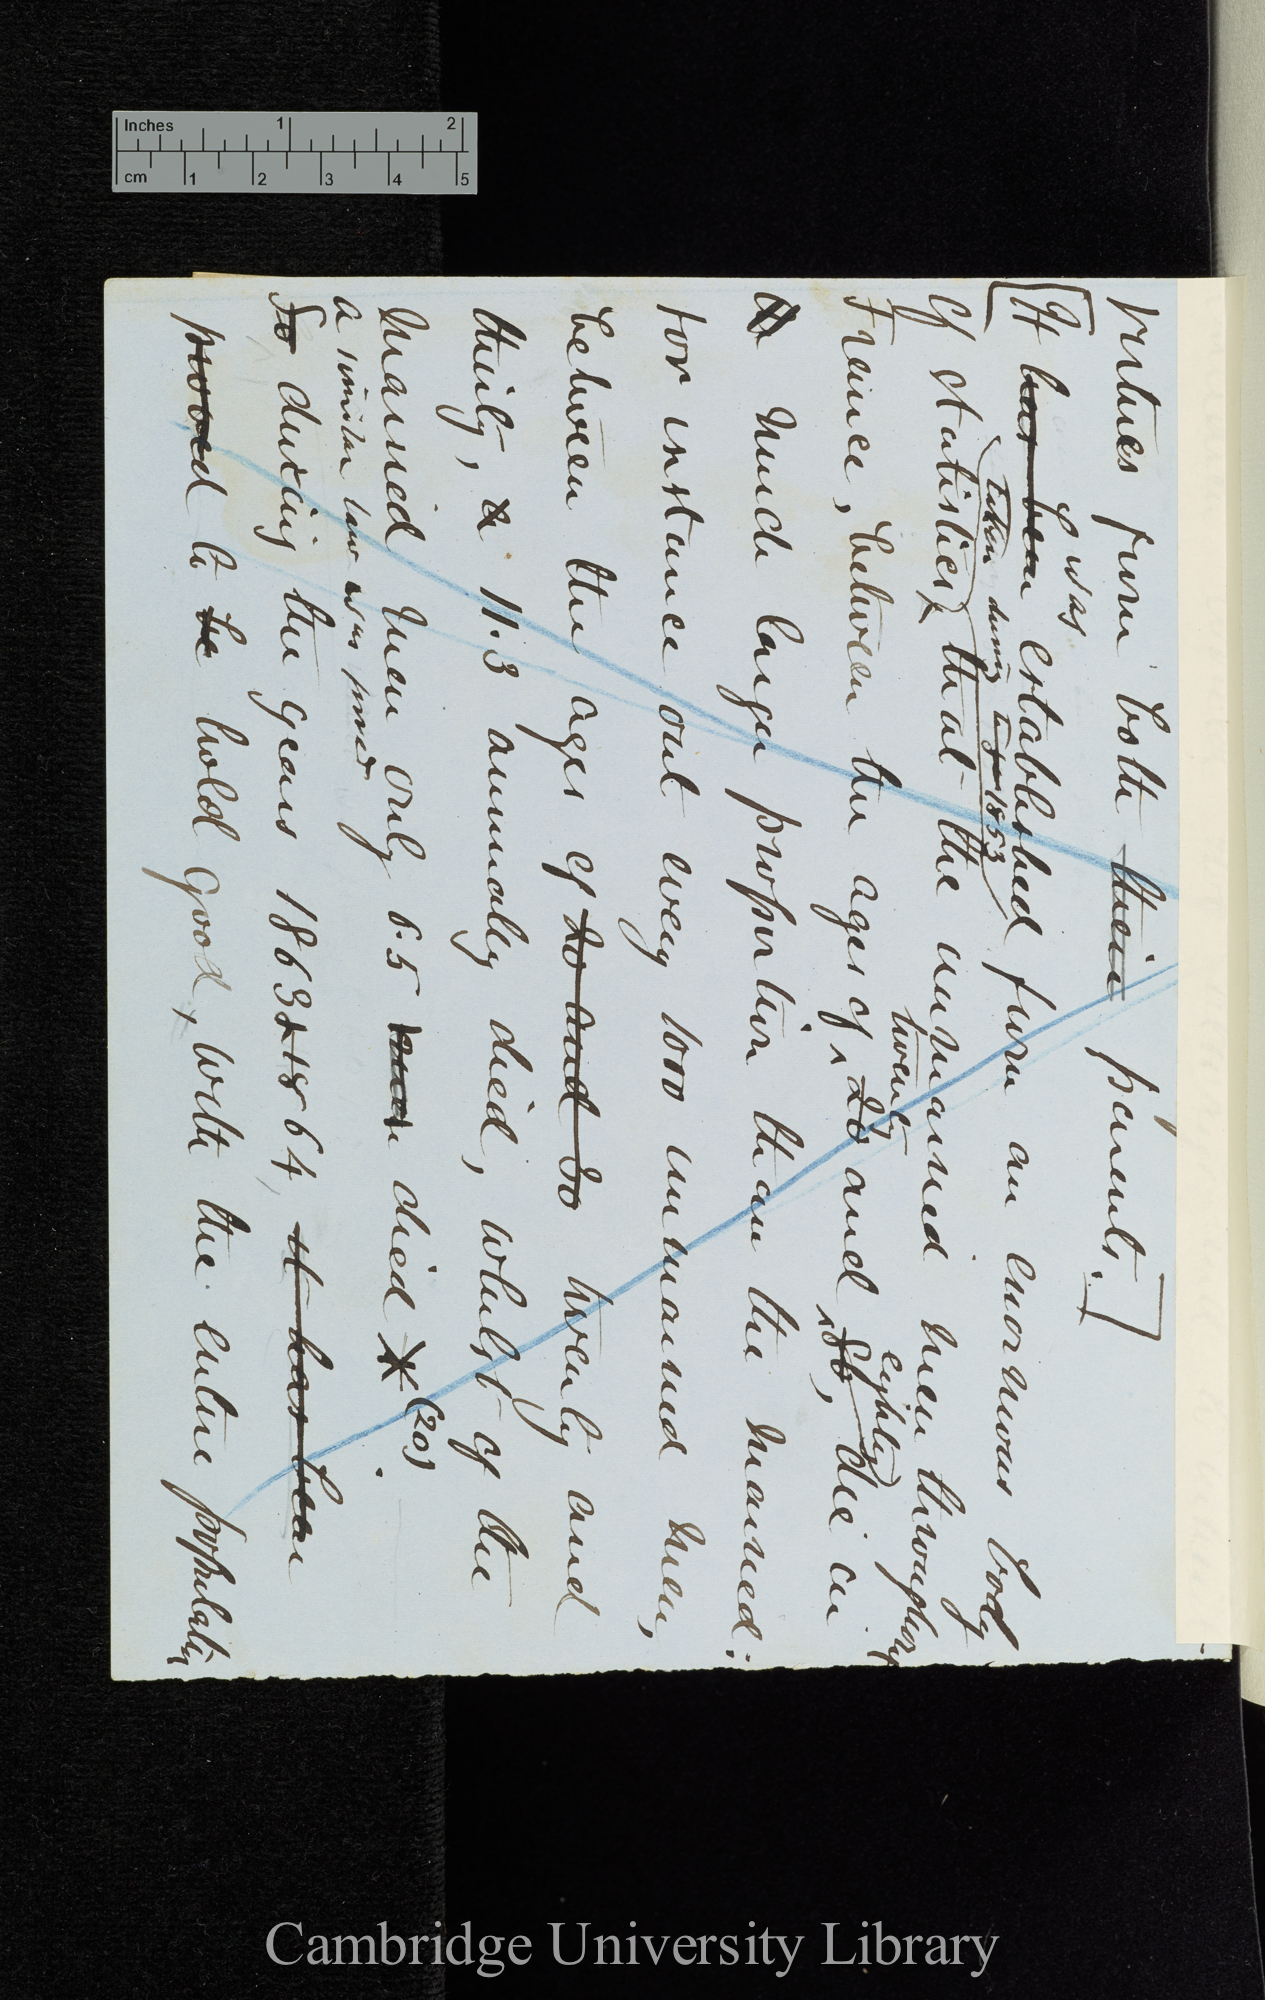 Inches 1 2
cm 1 2 3 4 5
virtues from both their parents.]
was
[It has been established from an enormous body
taken during 1853
of statistics, that the unmarried men throughout
twenty eighty
France, between the ages of 20 and 80, die in
a much larger proportion than the married:
for instance out every 1000 unmarried men,
between the ages of 20 and 30 twenty and
thirty, & 11.3 annually died, whilst of the
married men only 6.5 men died (20).
a similar law was proved
So during the years 1863 & 1864, it has been
proved to be hold good, with the entire population
Cambridge University Library